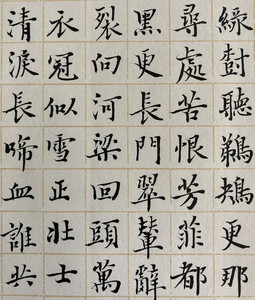 綠樹聽鵜鴂更那
尋處苦恨芳菲都
黑更長門翠輦辭
裂向河梁回頭萬
衣冠似雪正壯士
清淚長啼血誰共